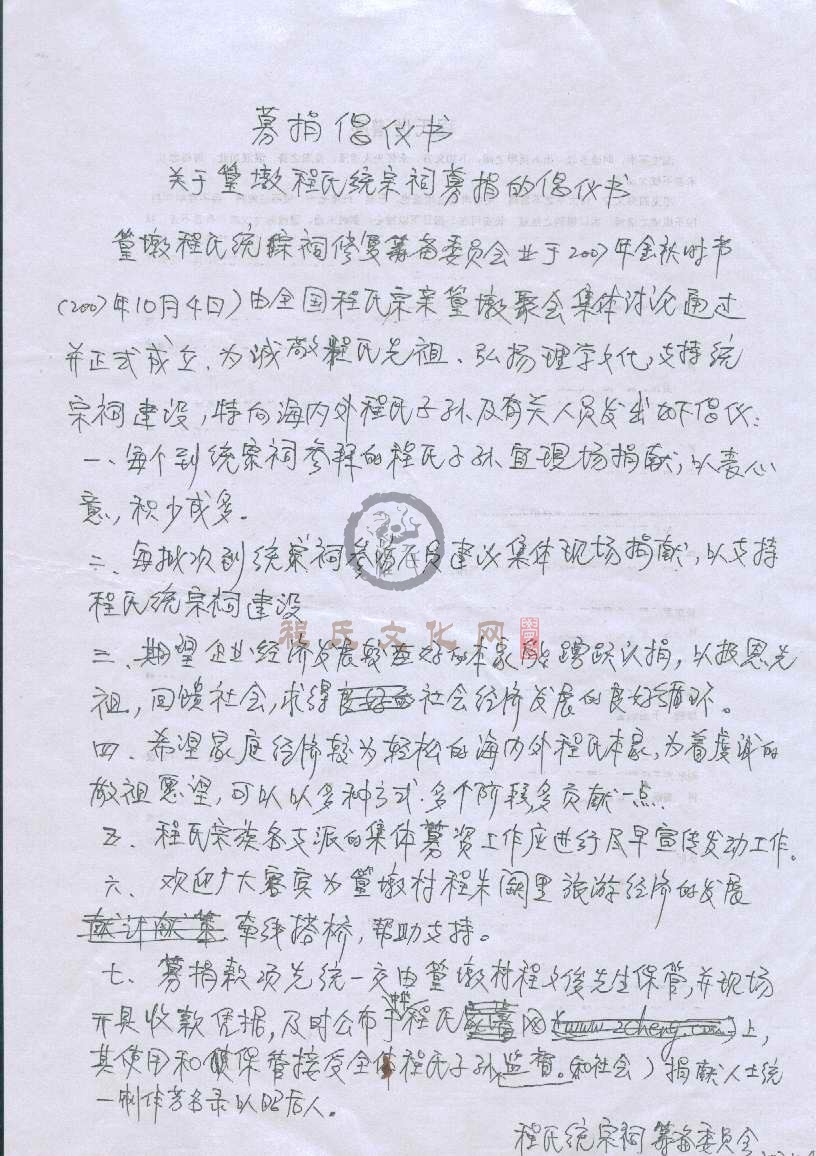 募捐倡仪书
关于篁墩程氏统宗祠募捐的倡仪书
篁墩程氏统综祠修复筹备委员会业于2007年金秋时书
(2007年10月4日)由全国程氏宗亲篁墩聚会集体讨论通过
并正式成立、为诚敬程氏先祖、弘扬理学文化,支持统
宗祠建设,特向海内外程氏子孙及有关人员发出如下倡仪:
一、每个到统宗祠参拜的程氏子孙宜现场捐献,以表心
意,积少成多。
二、每批次到统宗祠参 人员建议集体现场捐献,以支持
程氏统宗祠建设
程氏文化网
三、期望企业经济发展较 好的本家能踊跃认捐,以报恩先
祖,回馈社会,求得 社会经济发展的良好循环。
四、希望家庭经济较为轻松的海内外程氏本家,为着虔诚的
敬祖愿望,可以以多种方式.多个阶段,多贡献一点.
五、程氏宗族各支派的集体募资工作应进行尽早宣传发动工作。
六、欢迎广大赛宾为篁墩村程朱阙里旅游经济的发展
献计献策 牵线搭桥,帮助支持。
七、募捐款项先统一交由篁墩村程文俊先生保管,并现场
开具收款凭据,及时公布于程氏 网(www.zcheng.com)上,
其使用和 保管接受全体程氏子孙监督。和社会)捐献人士统
一制作芳名录以昭后人。
程氏统宗祠筹备委员会